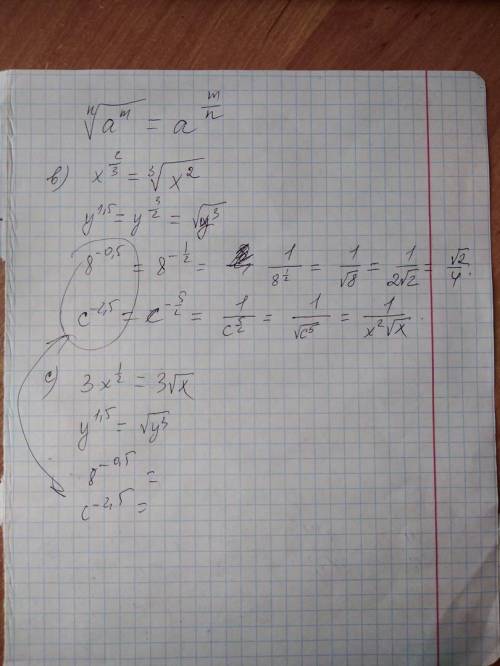 ⁿ√(a^m) = a^(m/n)
в) x^(2/3) = ³√(x²)
y^1,5 = y^(3/2) = √(y³)
8^-0,5 = 8^(-1/2) = 1/8^(1/2) = 1/√8 = 1/(2√2) = √2/4.
c^-2,5 = c^(-5/2) = 1/c^(5/2) = 1/√(c⁵) = 1/(x²√x).
с) 3x^(1/2) = 3√x
y^1,5 = √(y³)
8^-0,5 =
c^-2,5 =